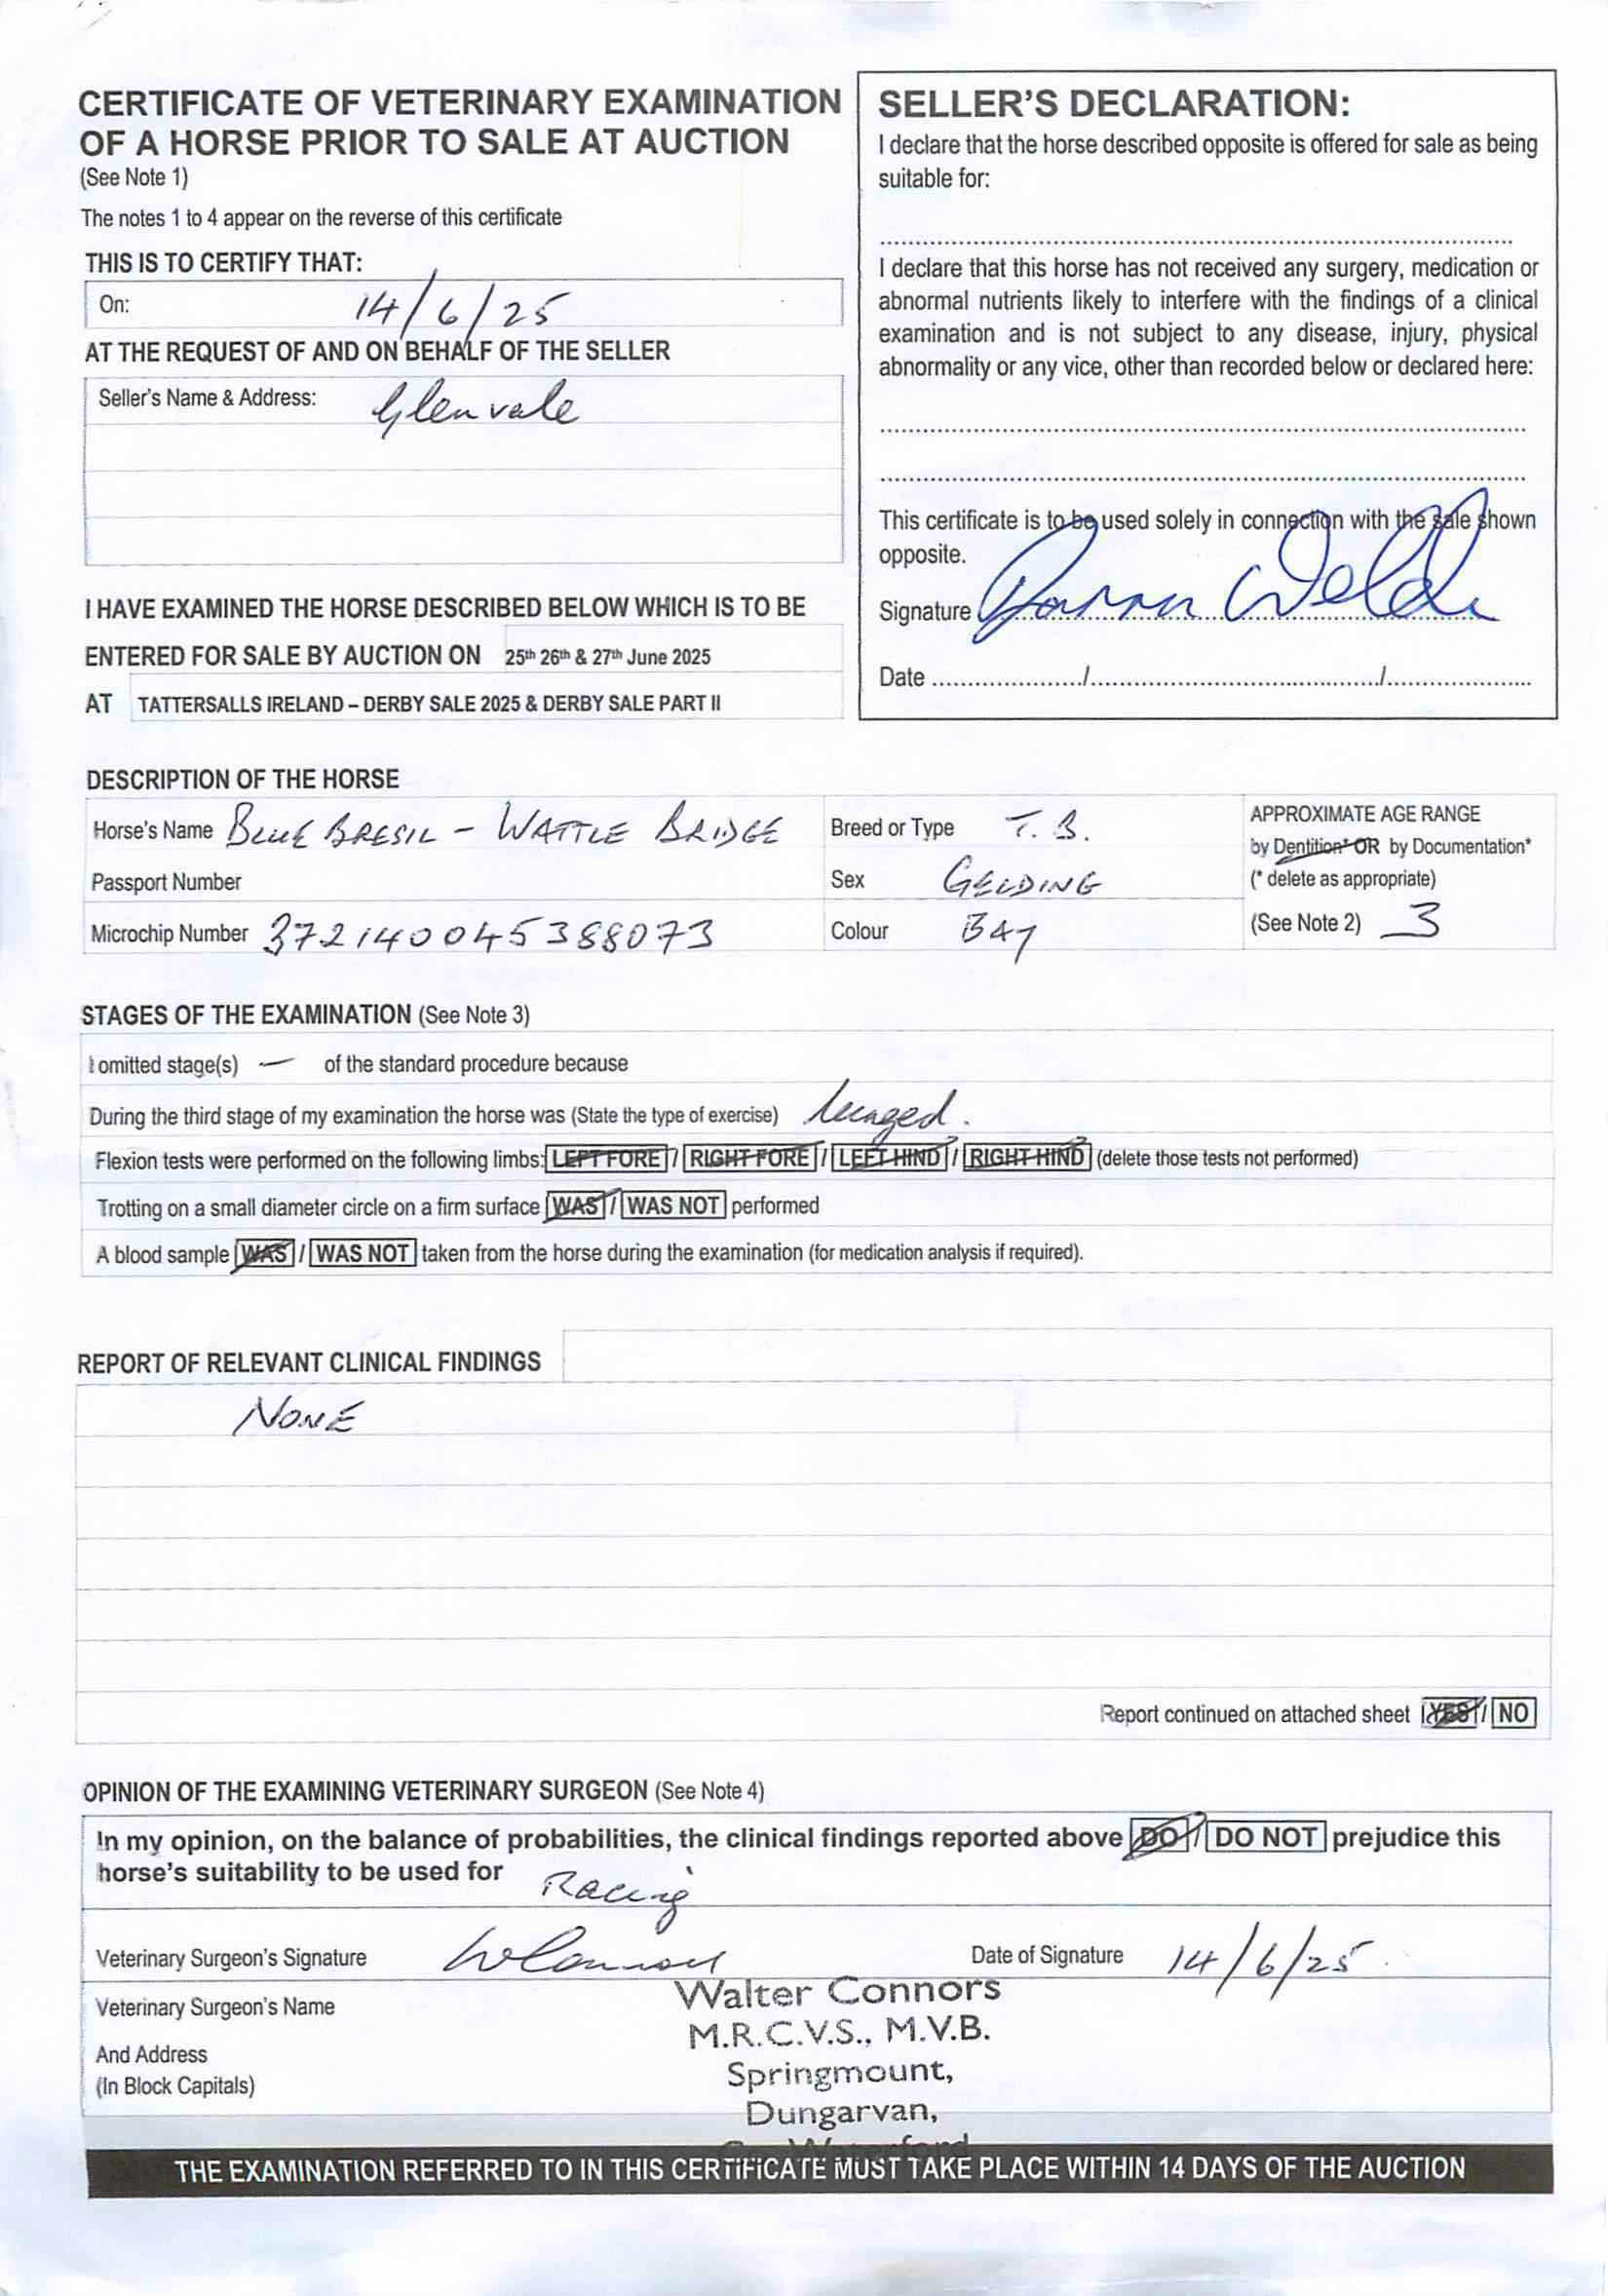 CERTIFICATE OF VETERINARY EXAMINATION
OF A HORSE PRIOR TO SALE AT AUCTION
(See Note 1)
The notes 1 to 4 appear on the reverse of this certificate
THIS IS TO CERTIFY THAT:
On: 14/6/25
AT THE REQUEST OF AND ON BEHALF OF THE SELLER
Seller's Name & Address: Glenvale
I HAVE EXAMINED THE HORSE DESCRIBED BELOW WHICH IS TO BE
ENTERED FOR SALE BY AUCTION ON 25th 26th & 27th June 2025
AT TATTERSALLS IRELAND – DERBY SALE 2025 & DERBY SALE PART II
SELLER'S DECLARATION:
I declare that the horse described opposite is offered for sale as being
suitable for:
I declare that this horse has not received any surgery, medication or
abnormal nutrients likely to interfere with the findings of a clinical
examination and is not subject to any disease, injury, physical
abnormality or any vice, other than recorded below or declared here:
This certificate is to be used solely in connection with the sale shown
opposite.
Signature
Date ...../...../.....
DESCRIPTION OF THE HORSE
Horse's Name BLUE BRESIL - WATTLE BRIDGE
Breed or Type T.B.
APPROXIMATE AGE RANGE
by Dentition* OR by Documentation*
(* delete as appropriate)
(See Note 2) 3
Passport Number
Sex GELDING
Microchip Number 372140045388073
Colour BAY
STAGES OF THE EXAMINATION (See Note 3)
I omitted stage(s) — of the standard procedure because
During the third stage of my examination the horse was (State the type of exercise) lunged.
Flexion tests were performed on the following limbs: LEFT FORE / RIGHT FORE / LEFT HIND / RIGHT HIND (delete those tests not performed)
Trotting on a small diameter circle on a firm surface WAS / WAS NOT performed
A blood sample WAS / WAS NOT taken from the horse during the examination (for medication analysis if required).
REPORT OF RELEVANT CLINICAL FINDINGS
NONE
Report continued on attached sheet YES / NO
OPINION OF THE EXAMINING VETERINARY SURGEON (See Note 4)
In my opinion, on the balance of probabilities, the clinical findings reported above DO / DO NOT prejudice this
horse's suitability to be used for Racing
Veterinary Surgeon's Signature WConnors
Date of Signature 14/6/25.
Veterinary Surgeon's Name
And Address
(In Block Capitals)
Walter Connors
M.R.C.V.S., M.V.B.
Springmount,
Dungarvan,
Co. Waterford
THE EXAMINATION REFERRED TO IN THIS CERTIFICATE MUST TAKE PLACE WITHIN 14 DAYS OF THE AUCTION